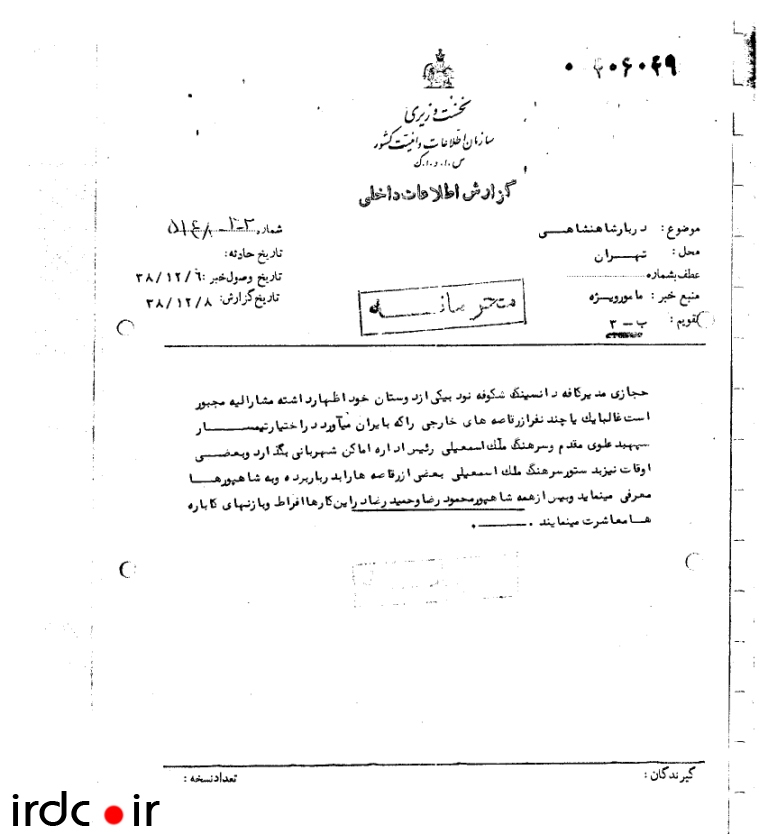 ۰ ۲۰۶۰۴۹
نخست وزیری
سازمان اطلاعات و امنیت کشور
س.ا.و.ا.ک
گزارش اطلاعات داخلی
موضوع : دربارشاهنشاهی
محل : تهران
عطف بشماره
منبع خبر : مامورویژه
تقویم : ب - ۳
شماره
تاریخ حادثه:
تاریخ وصول خبر : ۳۸/۱۲/۶
تاریخ گزارش: ۳۸/۱۲/۸
محرمانه
حجازی مدیرکافه دانسینگ شکوفه نود بیکی ازدوستان خود اظهارداشته مشارالیه مجبور
است غالبایك یاچند نفرازرقاصه های خارجی راکه بایران میآورد دراختیارتیمسار
سپهبد علوی مقدم وسرهنگ ملك اسمعیلی رئیس اداره اماکن شهربانی بگذارد وبعضی
اوقات نیزبد ستورسرهنگ ملك اسمعیلی بعضی ازرقاصه هارابد رباربرده وبه شاهپورها
معرفی مینماید وبیس ازهمه شاهپورمحمود رضا وحمید رضاد راین کارهاافراط وبازنهای کاباره
هامعاشرت مینمایند .
گیرندگان :
تعدادنسخه :
irdc.ir